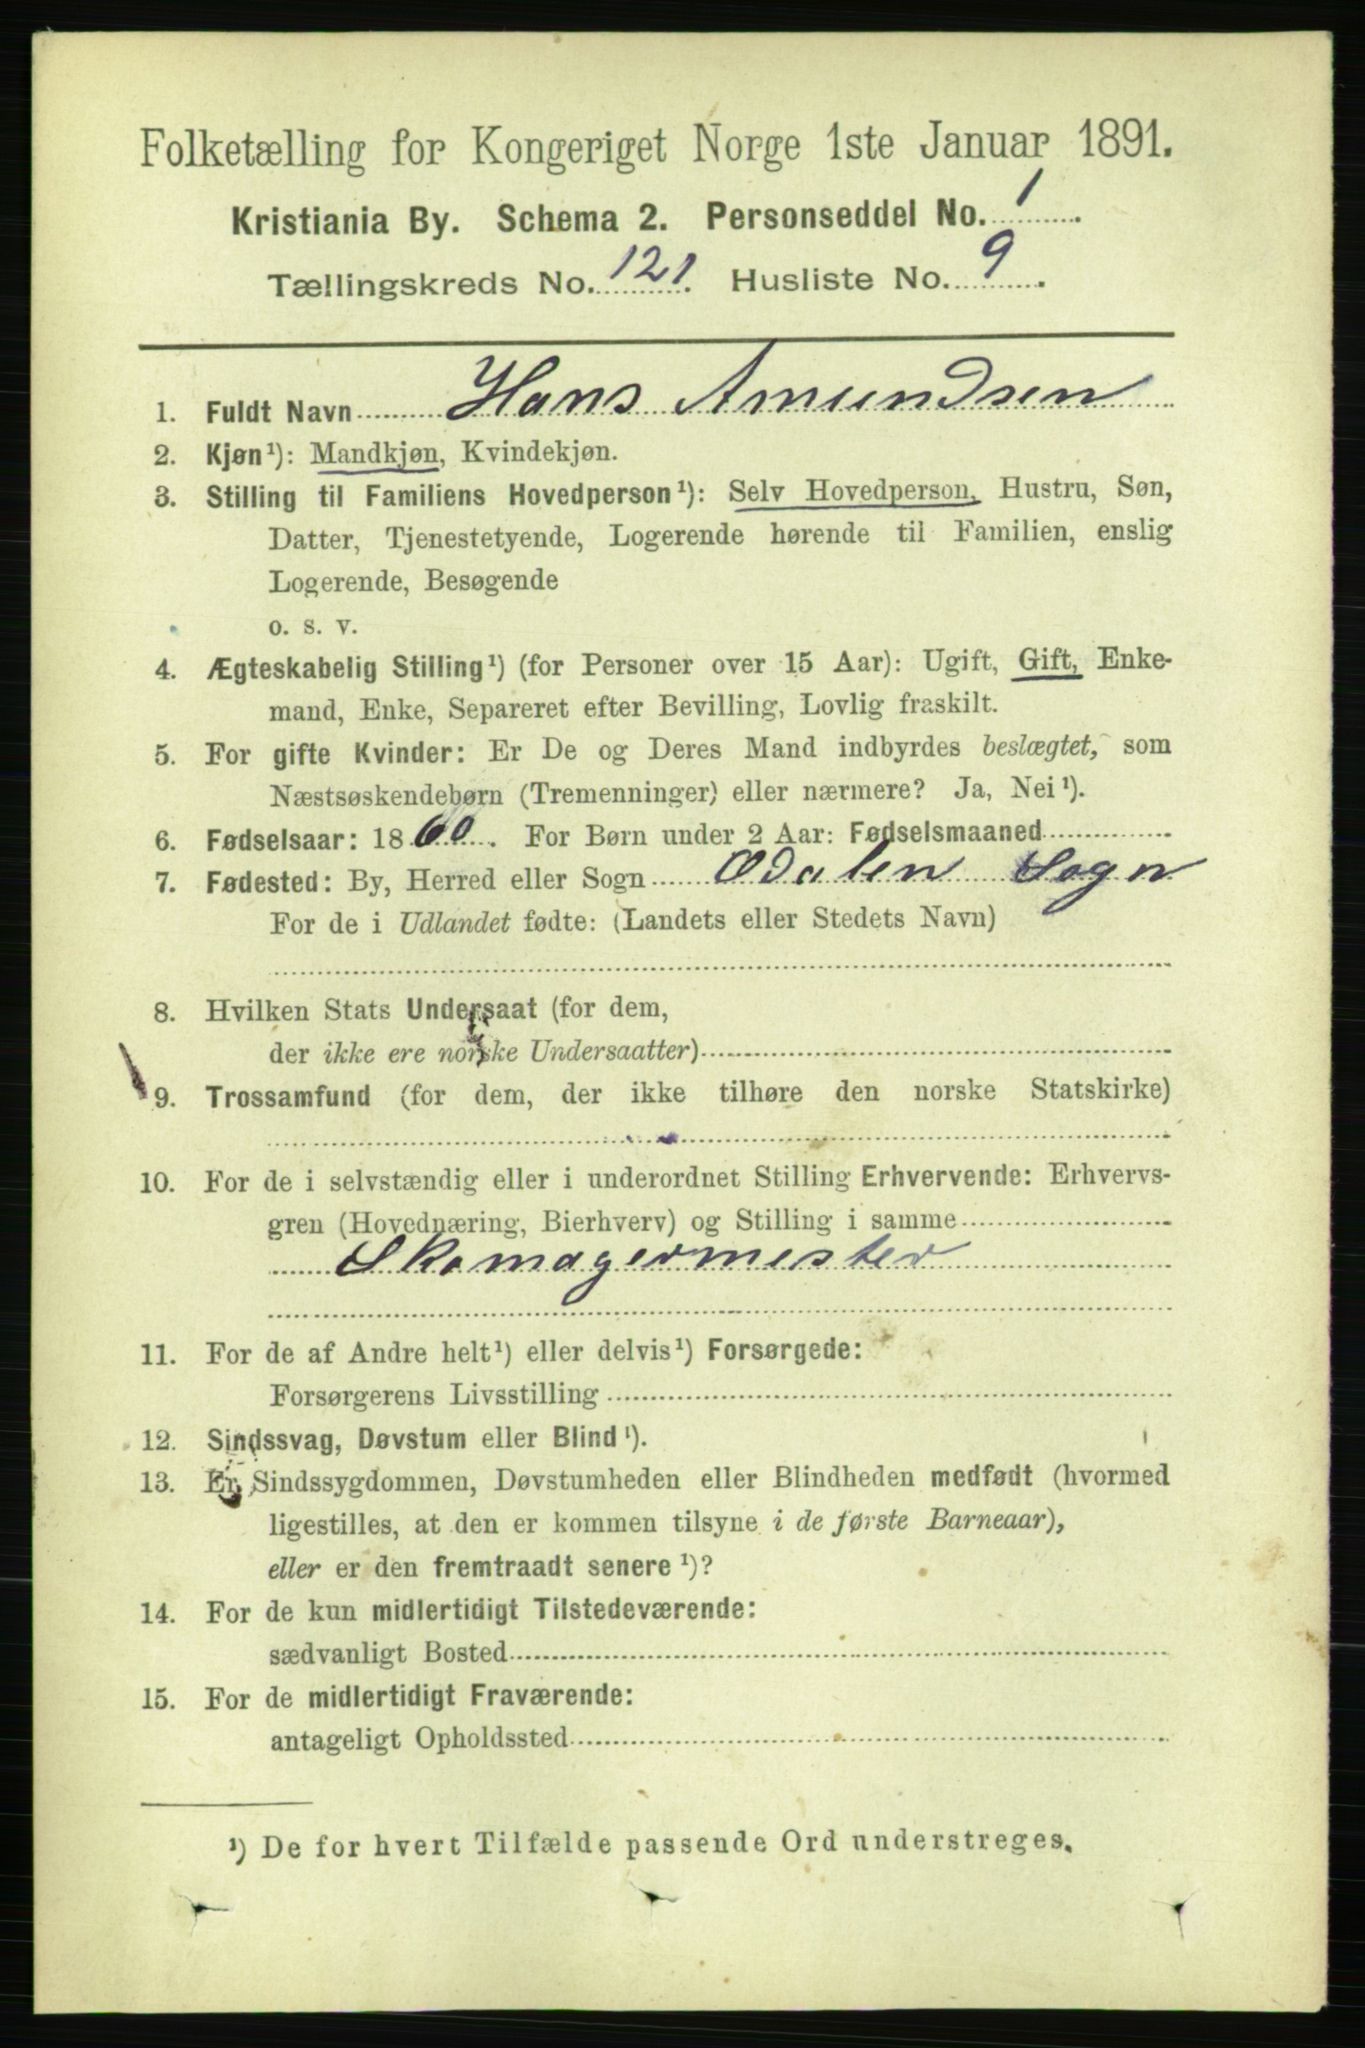 Folketælling for Kongeriget Norge 1ste Januar 1891.
Kristiania By. Schema 2. Personseddel No. 1.
Tællingskreds No. 121. Husliste No. 9.
1. Fuldt Navn Hans Amundsen
2. Kjøn¹): Mandkjøn, Kvindekjøn.
3. Stilling til Familiens Hovedperson¹): Selv Hovedperson, Hustru, Søn,
Datter, Tjenestetyende, Logerende hørende til Familien, enslig
Logerende, Besøgende
o. s. v.
4. Ægteskabelig Stilling¹) (for Personer over 15 Aar): Ugift, Gift, Enke-
mand, Enke, Separeret efter Bevilling, Lovlig fraskilt.
5. For gifte Kvinder: Er De og Deres Mand indbyrdes beslægtet, som
Næstsøskendebørn (Tremenninger) eller nærmere? Ja, Nei¹).
6. Fødselsaar: 1860. For Børn under 2 Aar: Fødselsmaaned
7. Fødested: By, Herred eller Sogn Odalen Sogn
For de i Udlandet fødte: (Landets eller Stedets Navn)
8. Hvilken Stats Undersaat (for dem,
der ikke ere norske Undersaatter)
9. Trossamfund (for dem, der ikke tilhøre den norske Statskirke)
10. For de i selvstændig eller i underordnet Stilling Erhvervende: Erhvervs-
gren (Hovednæring, Bierhverv) og Stilling i samme
Skomagermester
11. For de af Andre helt¹) eller delvis¹) Forsørgede:
Forsørgerens Livsstilling
12. Sindssvag, Døvstum eller Blind¹).
13. Er Sindssygdommen, Døvstumheden eller Blindheden medfødt (hvormed
ligestilles, at den er kommen tilsyne i de første Barneaar),
eller er den fremtraadt senere¹)?
14. For de kun midlertidigt Tilstedeværende:
sædvanligt Bosted
15. For de midlertidigt Fraværende:
antageligt Opholdssted
¹) De for hvert Tilfælde passende Ord understreges.